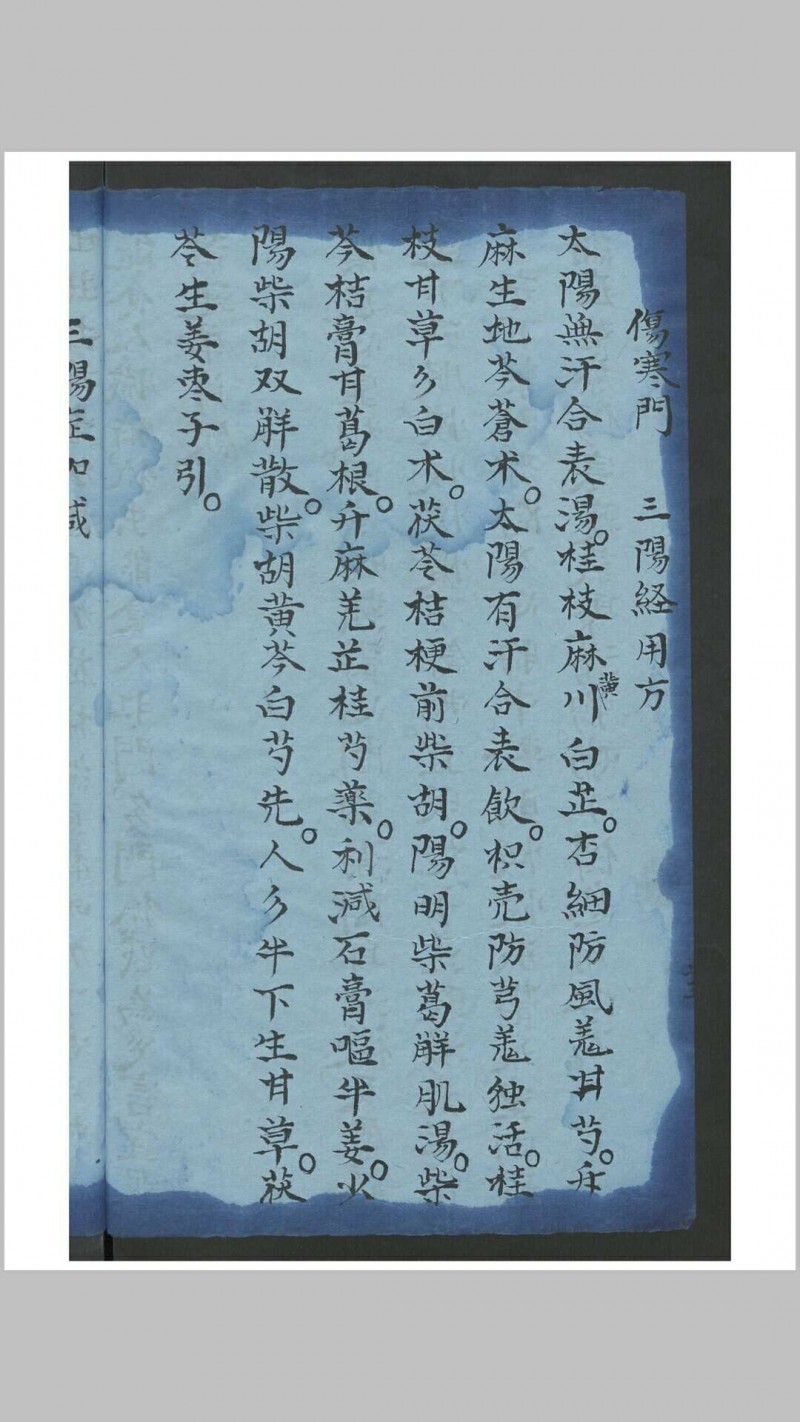 傷寒門　三陽経用方
太陽無汗合表湯。桂枝麻黄川白芷。杏細防風羗甘芍。升
麻生地芩蒼术。太陽有汗合表飲。枳壳防芎羗独活。桂
枝甘草夕白术。茯苓桔梗前柴胡。陽明柴葛觧肌湯。柴
芩桔膏甘葛根。升麻羌芷桂芍藥。利減石膏嘔半姜。少
陽柴胡双觧散。柴胡黄芩白芍先。人夕半下生甘草。茯
苓生姜枣子引。
三陽症加減